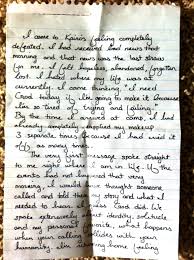 I came to Kairos feeling completely
defeated. I had received bad news that
morning and that news was the last straw
for me. I felt hopeless, abandoned, forgotten
lost. I hated where my life was at
currently. I came thinking, "I need
God today if I'm going to make it because
I'm so tired of trying and failing."
By the time I arrived at camp, I had
already completely my makeup
3 separate times because I had cried it
off as many times.
The very first message, spoke straight
to me right where I am in life. If the
events had not happened that
morning, I would have thought someone
called and told them my story and what I
needed to hear. God did. We
spoke extensively about identity, solitude
and my personal favorite, what happens
when your calling collides with your
humanity. I leaving home feeling